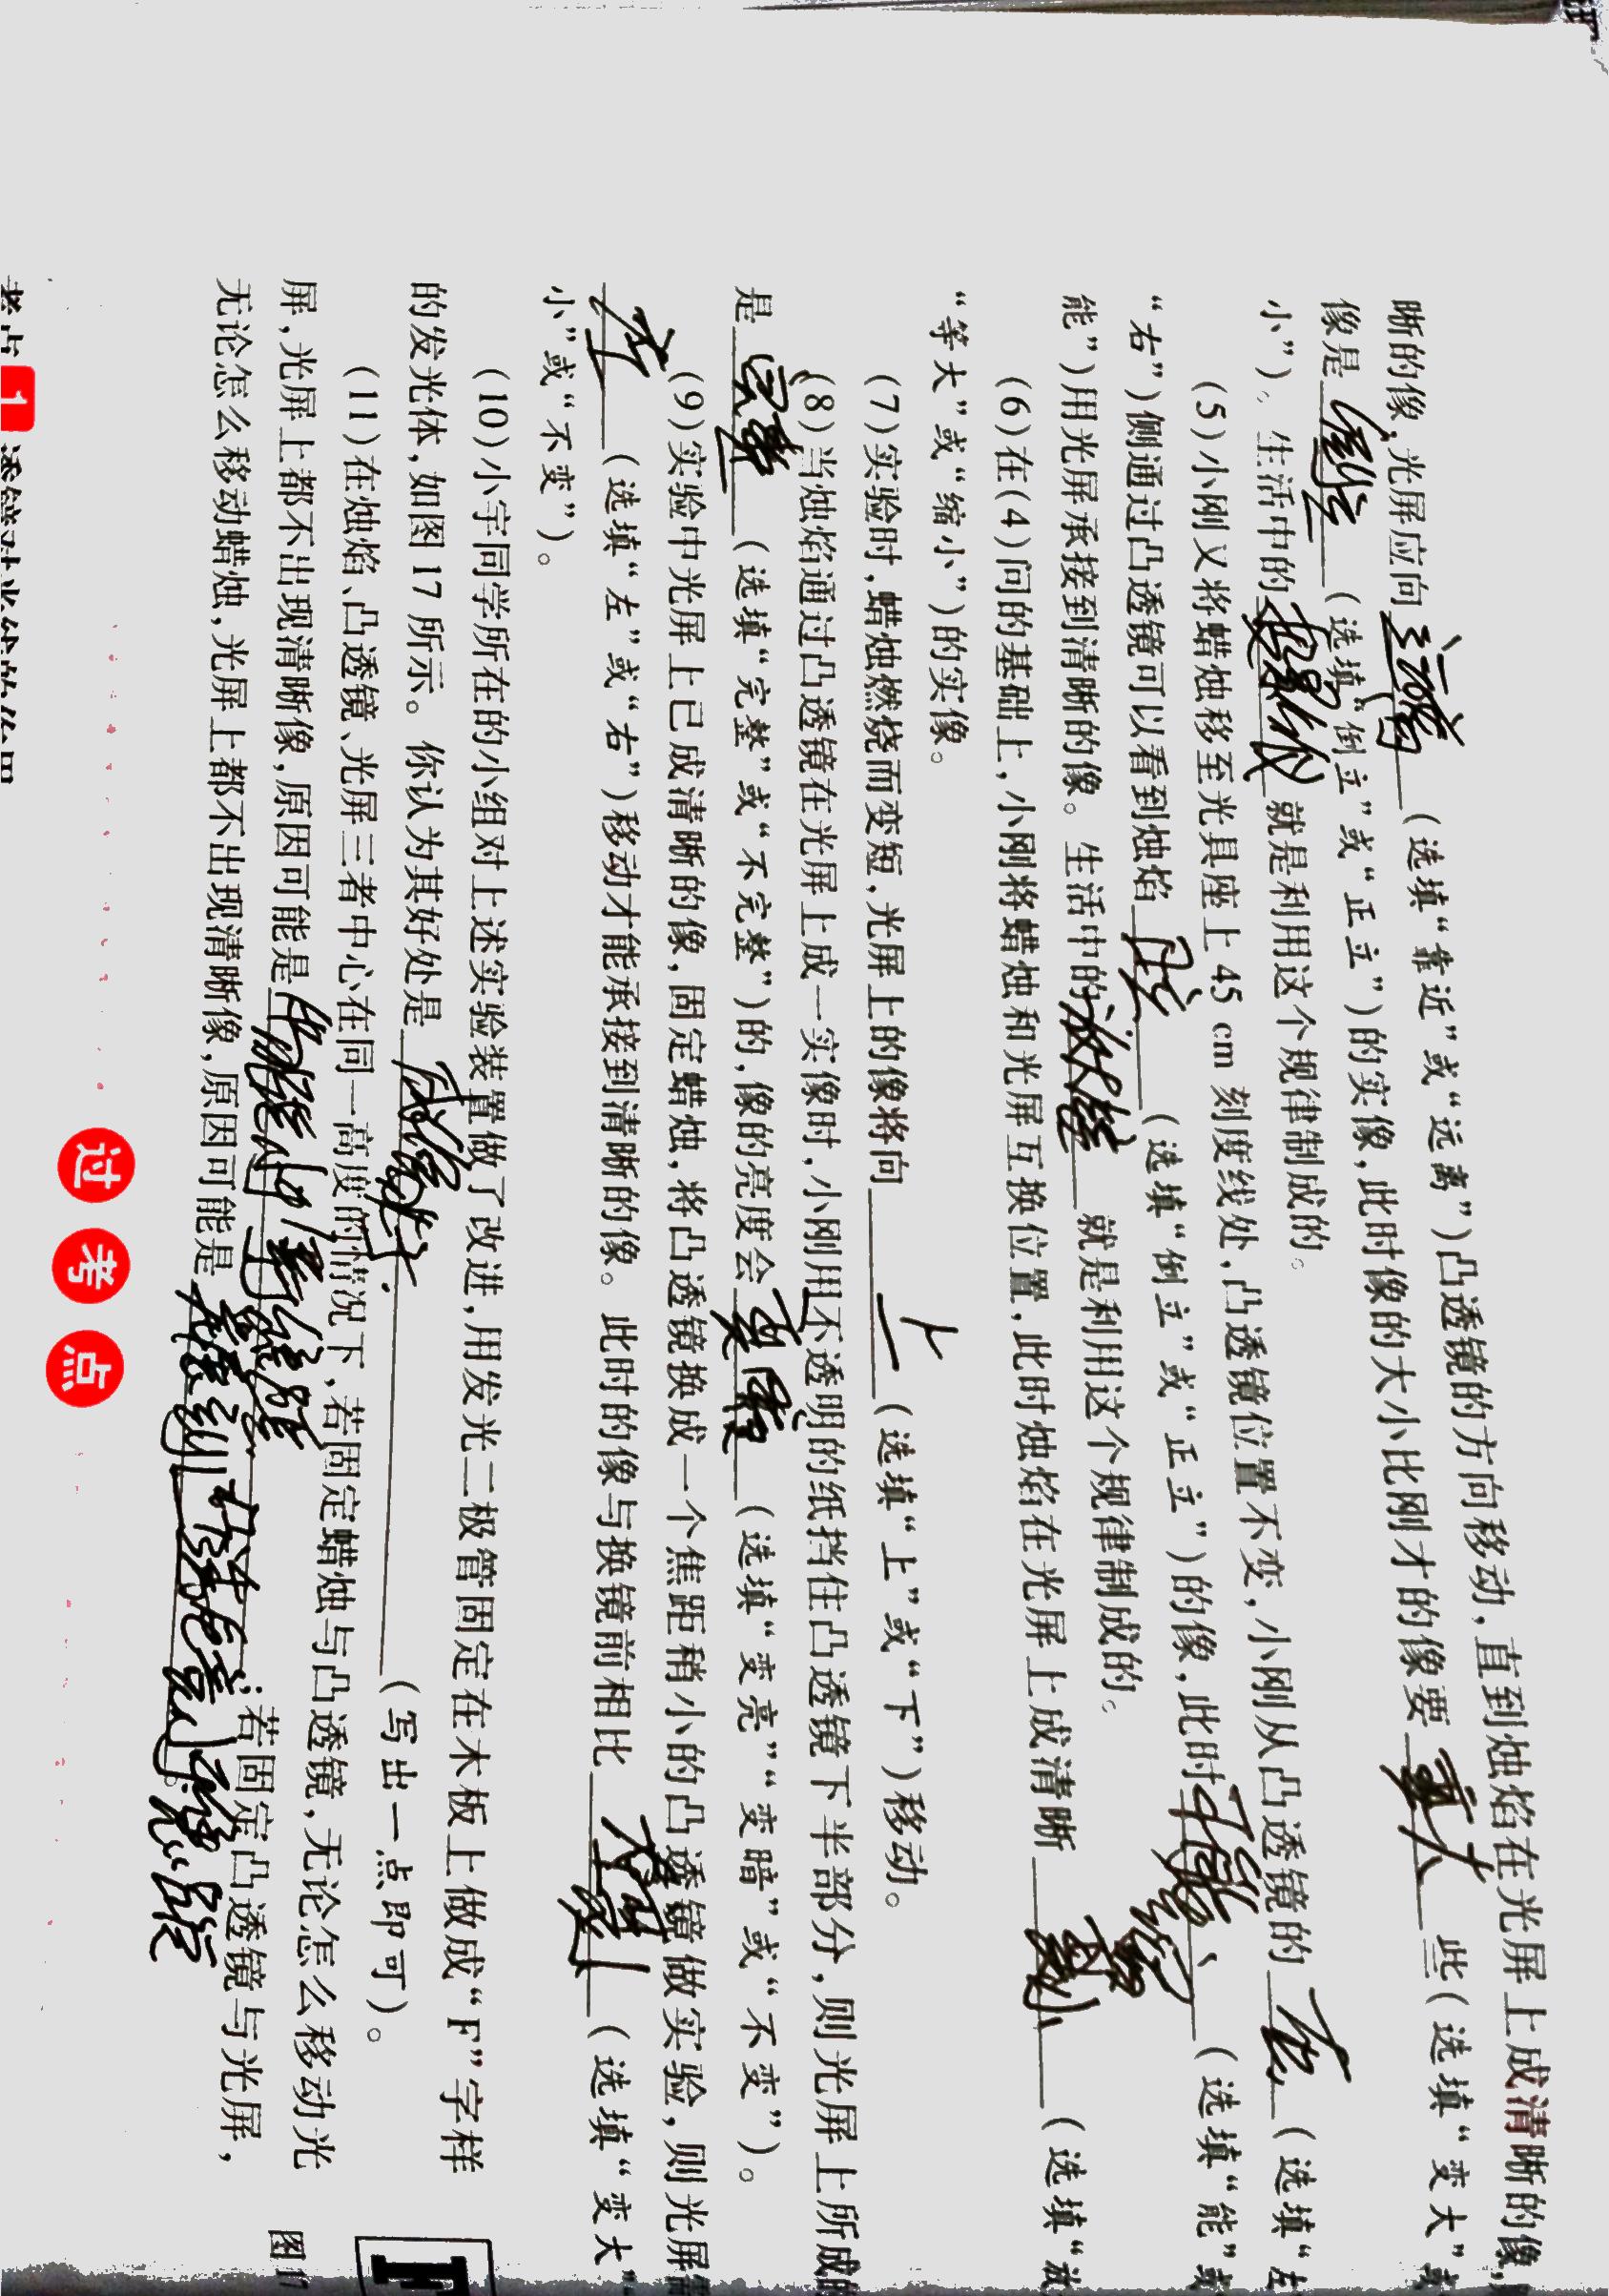 晰的像,光屏应向 远离 (选填“靠近”或“远离”)凸透镜的方向移动,直到烛焰在光屏上成清晰的像,
像是 倒立 (选填“倒立”或“正立”)的实像,此时像的大小比刚才的像要 变大 些(选填“变大”或
小”)。生活中的 投影仪 就是利用这个规律制成的。
(5)小刚又将蜡烛移至光具座上45 cm刻度线处,凸透镜位置不变,小刚从凸透镜的 右 (选填“左
“右”)侧通过凸透镜可以看到烛焰 正立 (选填“倒立”或“正立”)的像,此时 不能 (选填“能”或
能”)用光屏承接到清晰的像。生活中的 放大镜 就是利用这个规律制成的。
(6)在(4)问的基础上,小刚将蜡烛和光屏互换位置,此时烛焰在光屏上成清晰 缩小 (选填“放
“等大”或“缩小”)的实像。
(7)实验时,蜡烛燃烧而变短,光屏上的像将向 上 (选填“上”或“下”)移动。
(8)当烛焰通过凸透镜在光屏上成一实像时,小刚用不透明的纸挡住凸透镜下半部分,则光屏上所成的
是 完整 (选填“完整”或“不完整”)的,像的亮度会 变暗 (选填“变亮”“变暗”或“不变”)。
(9)实验中光屏上已成清晰的像,固定蜡烛,将凸透镜换成一个焦距稍小的凸透镜做实验,则光屏需
左 (选填“左”或“右”)移动才能承接到清晰的像。此时的像与换镜前相比 (选填“变大”
小”或“不变”)。
(10)小宇同学所在的小组对上述实验装置做了改进,用发光二极管固定在木板上做成“F”字样
的发光体,如图17所示。你认为其好处是 (写出一点即可)。
(11)在烛焰、凸透镜、光屏三者中心在同一高度的情况下,若固定蜡烛与凸透镜,无论怎么移动光
屏,光屏上都不出现清晰像,原因可能是 ;若固定凸透镜与光屏,
无论怎么移动蜡烛,光屏上都不出现清晰像,原因可能是
F
图17
过考点
考点1 透镜对光线的作用